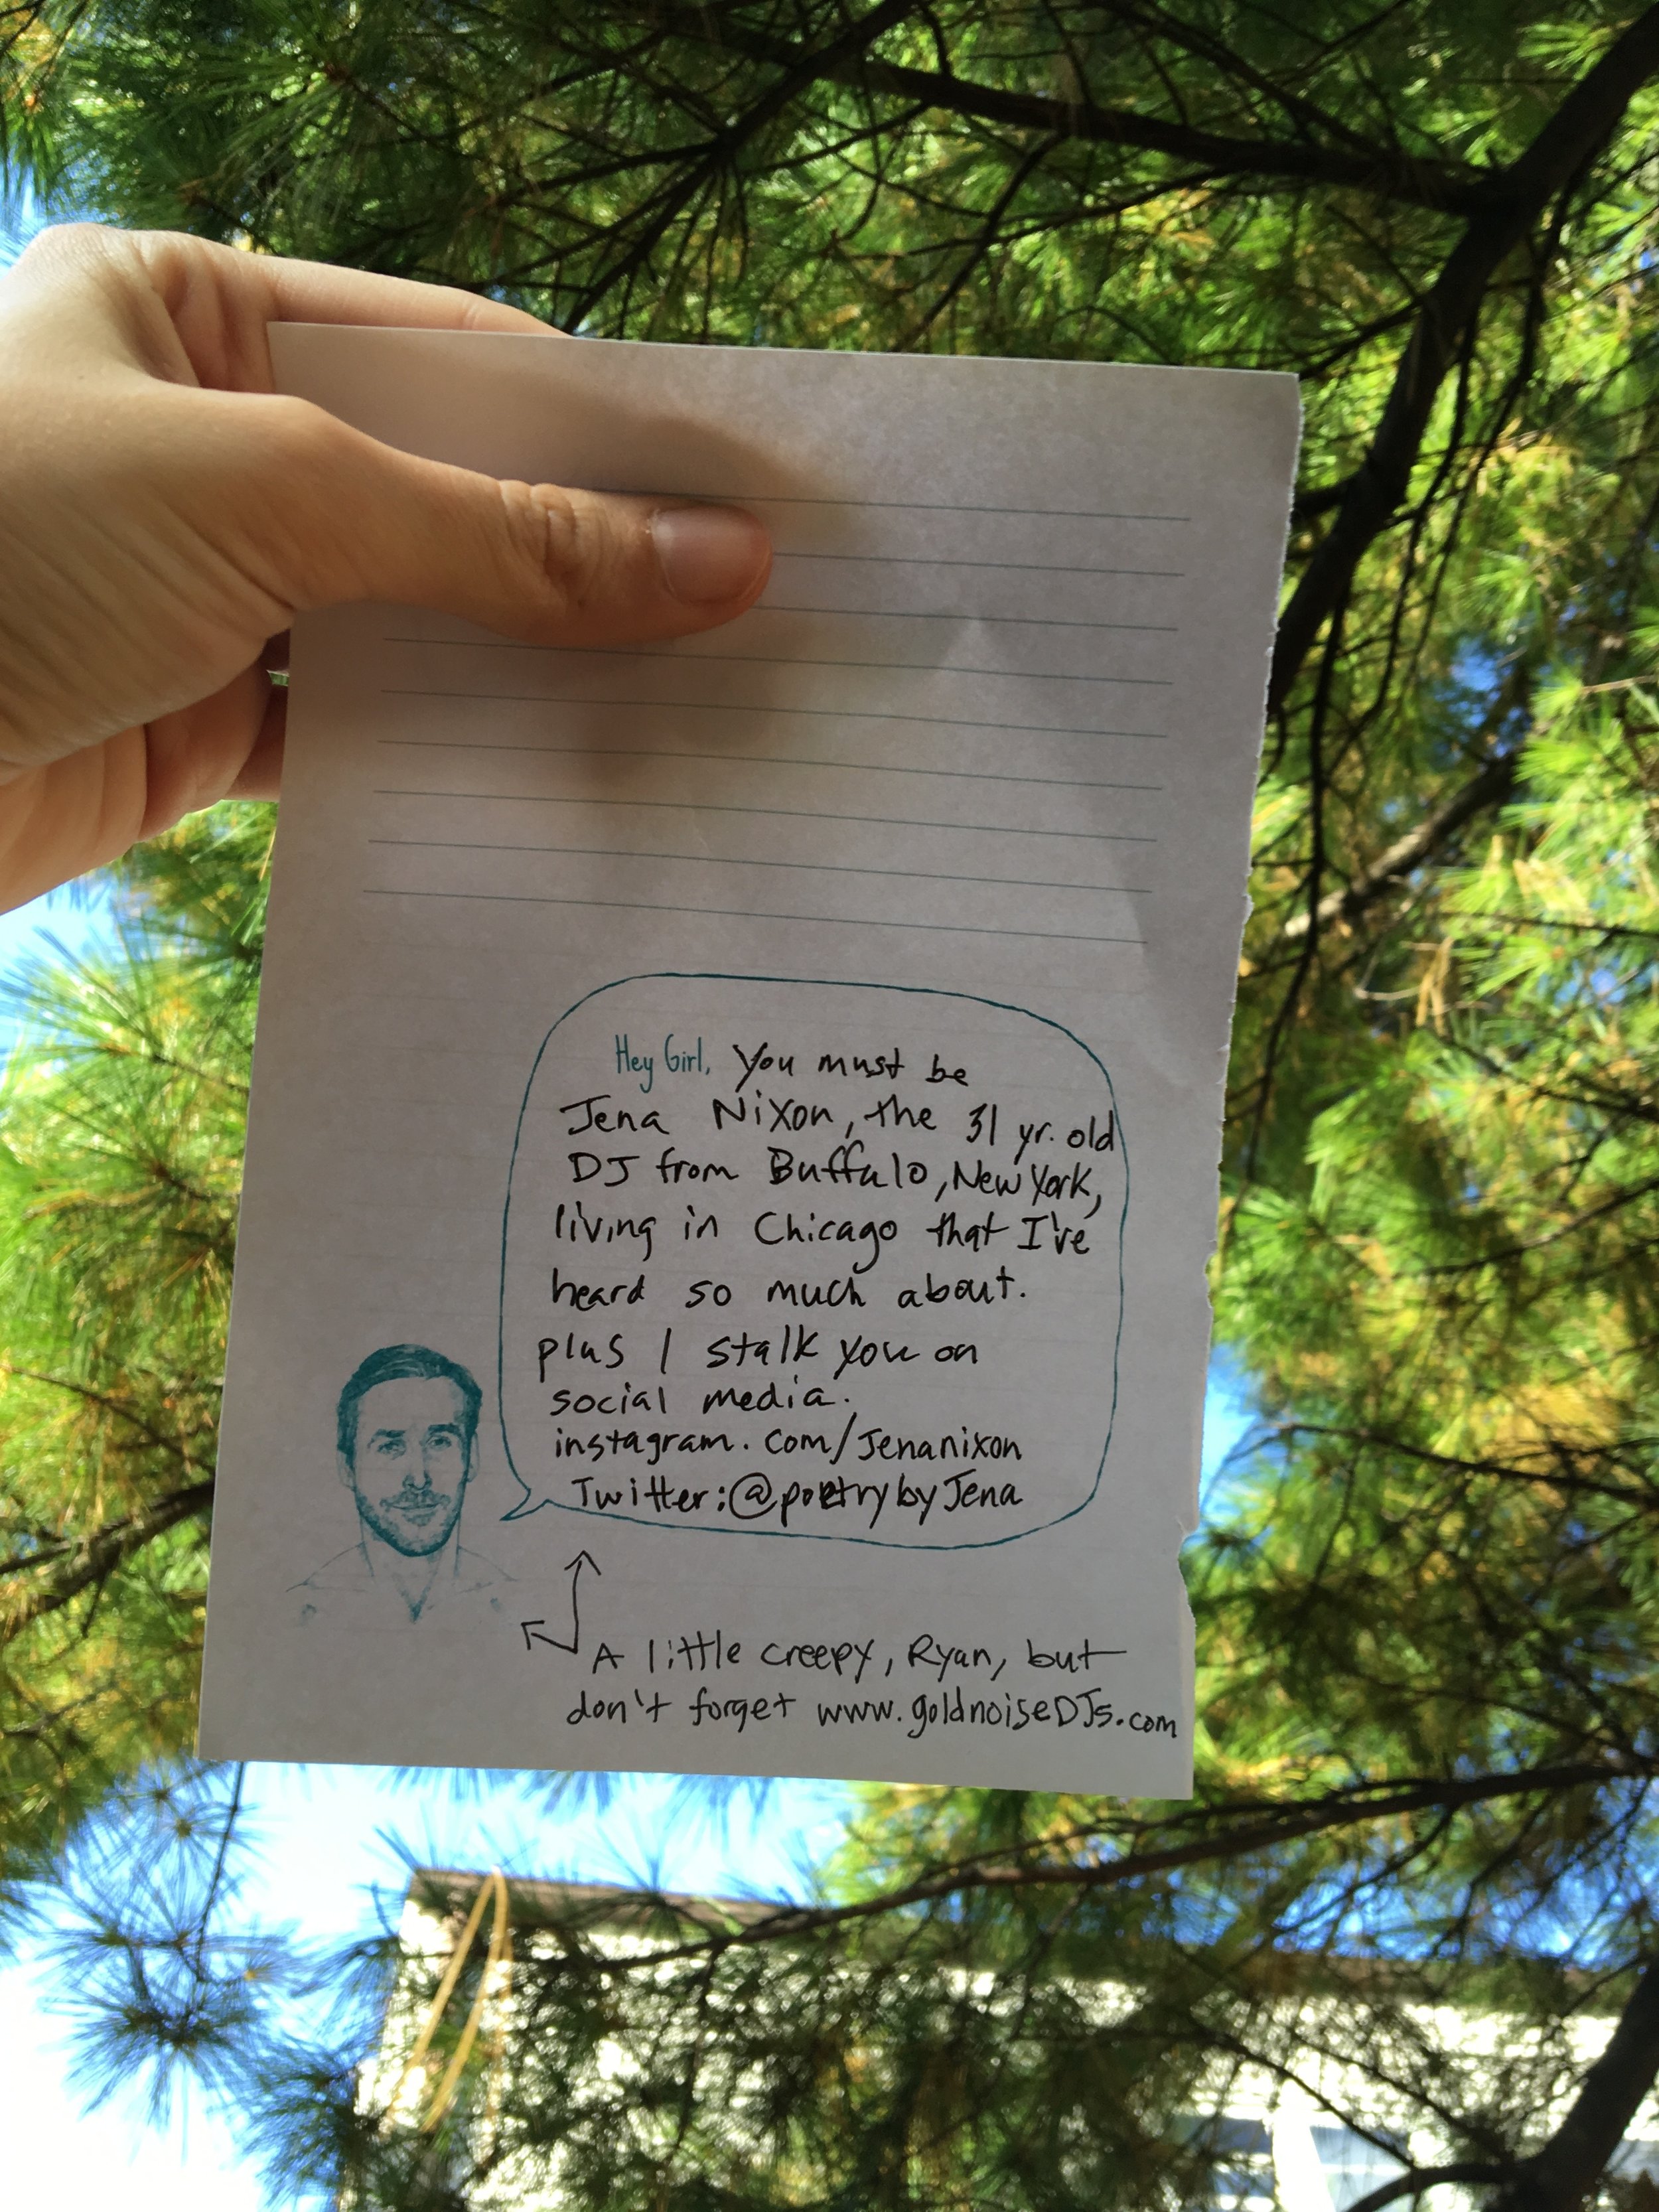 Hey Girl, You must be
Jena Nixon, the 31 yr. old
DJ from Buffalo, New York,
living in Chicago that I've
heard so much about.
plus I stalk you on
social media.
instagram.com/Jenanixon
Twitter:@poetrybyJena
A little creepy, Ryan, but
don't forget www.goldnoiseDJs.com